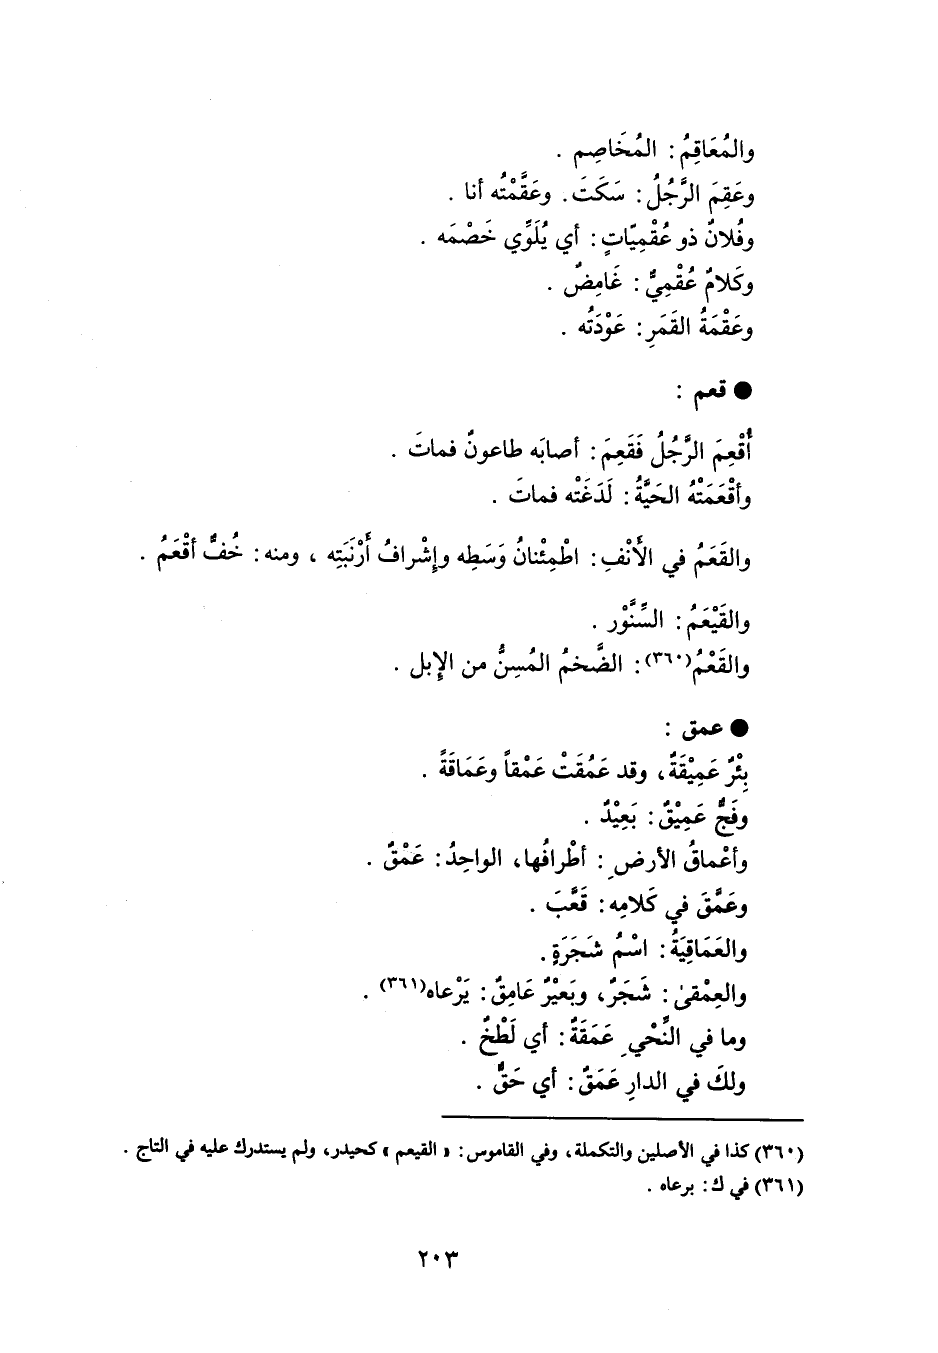 والمُعَاقِمُ: المُخَاصِم .
وعَقِمَ الرَّجُلُ: سَكَتَ. وعَقَّمْتُه أنا .
وفُلانٌ ذو عُقْمِيّاتٍ: أي يُلَوِّي خَصْمَه .
وكَلامٌ عُقْمِيٌّ: غَامِضٌ .
وعَقْمَةُ القَمَرِ: عَوْدَتُه .
● قعم :
أُقْعِمَ الرَّجُلُ فَقَعِمَ: أصابَه طاعونٌ فماتَ .
وأقْعَمَتْهُ الحَيَّةُ: لَدَغَتْه فماتَ .
والقَعَمُ في الأَنْفِ: اطْمِئْنانُ وَسَطِه وإِشْرافُ أَرْنَبَتِه ، ومنه: خُفٌّ أقْعَمُ .
والقَيْعَمُ: السِّنَّوْر .
والقَعْمُ(٣٦٠): الضَّخمُ المُسِنُّ من الإِبل .
● عمق :
بِئْرٌ عَمِيْقَةٌ، وقد عَمُقَتْ عَمْقاً وعَمَاقَةً .
وفَجٌّ عَمِيْقٌ: بَعِيْدٌ .
وأعْماقُ الأرضِ: أطْرافُها، الواحِدُ: عَمْقٌ .
وعَمَّقَ في كَلامِه: قَعَّبَ .
والعَمَاقِيَةُ: اسْمُ شَجَرَةٍ.
والعِمْقىٰ: شَجَرٌ، وبَعيْرٌ عَامِقٌ: يَرْعاه(٣٦١) .
وما في النِّحْيِ عَمَقَةٌ: أي لَطْخٌ .
ولكَ في الدارِ عَمَقٌ: أي حَقٌّ .
(٣٦٠) كذا في الأصلين والتكملة، وفي القاموس: « القيعم » كحيدر، ولم يستدرك عليه في التاج .
(٣٦١) في ك: برعاه .
٢٠٣